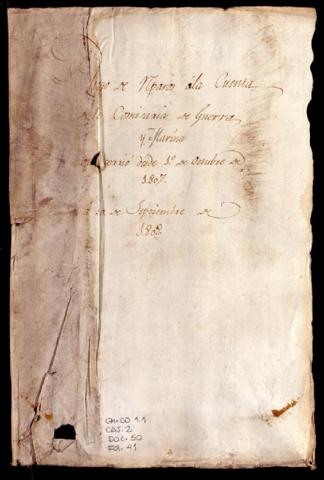 de Reparos á la Cuenta
de la Comisaria de Guerra
y Marina
que corrió desde 1º de Octubre de
1807.
á 30 de Septiembre de
1808.
GM-CO 1.1
CAJ: 2
DOC: 50
FOL: 41